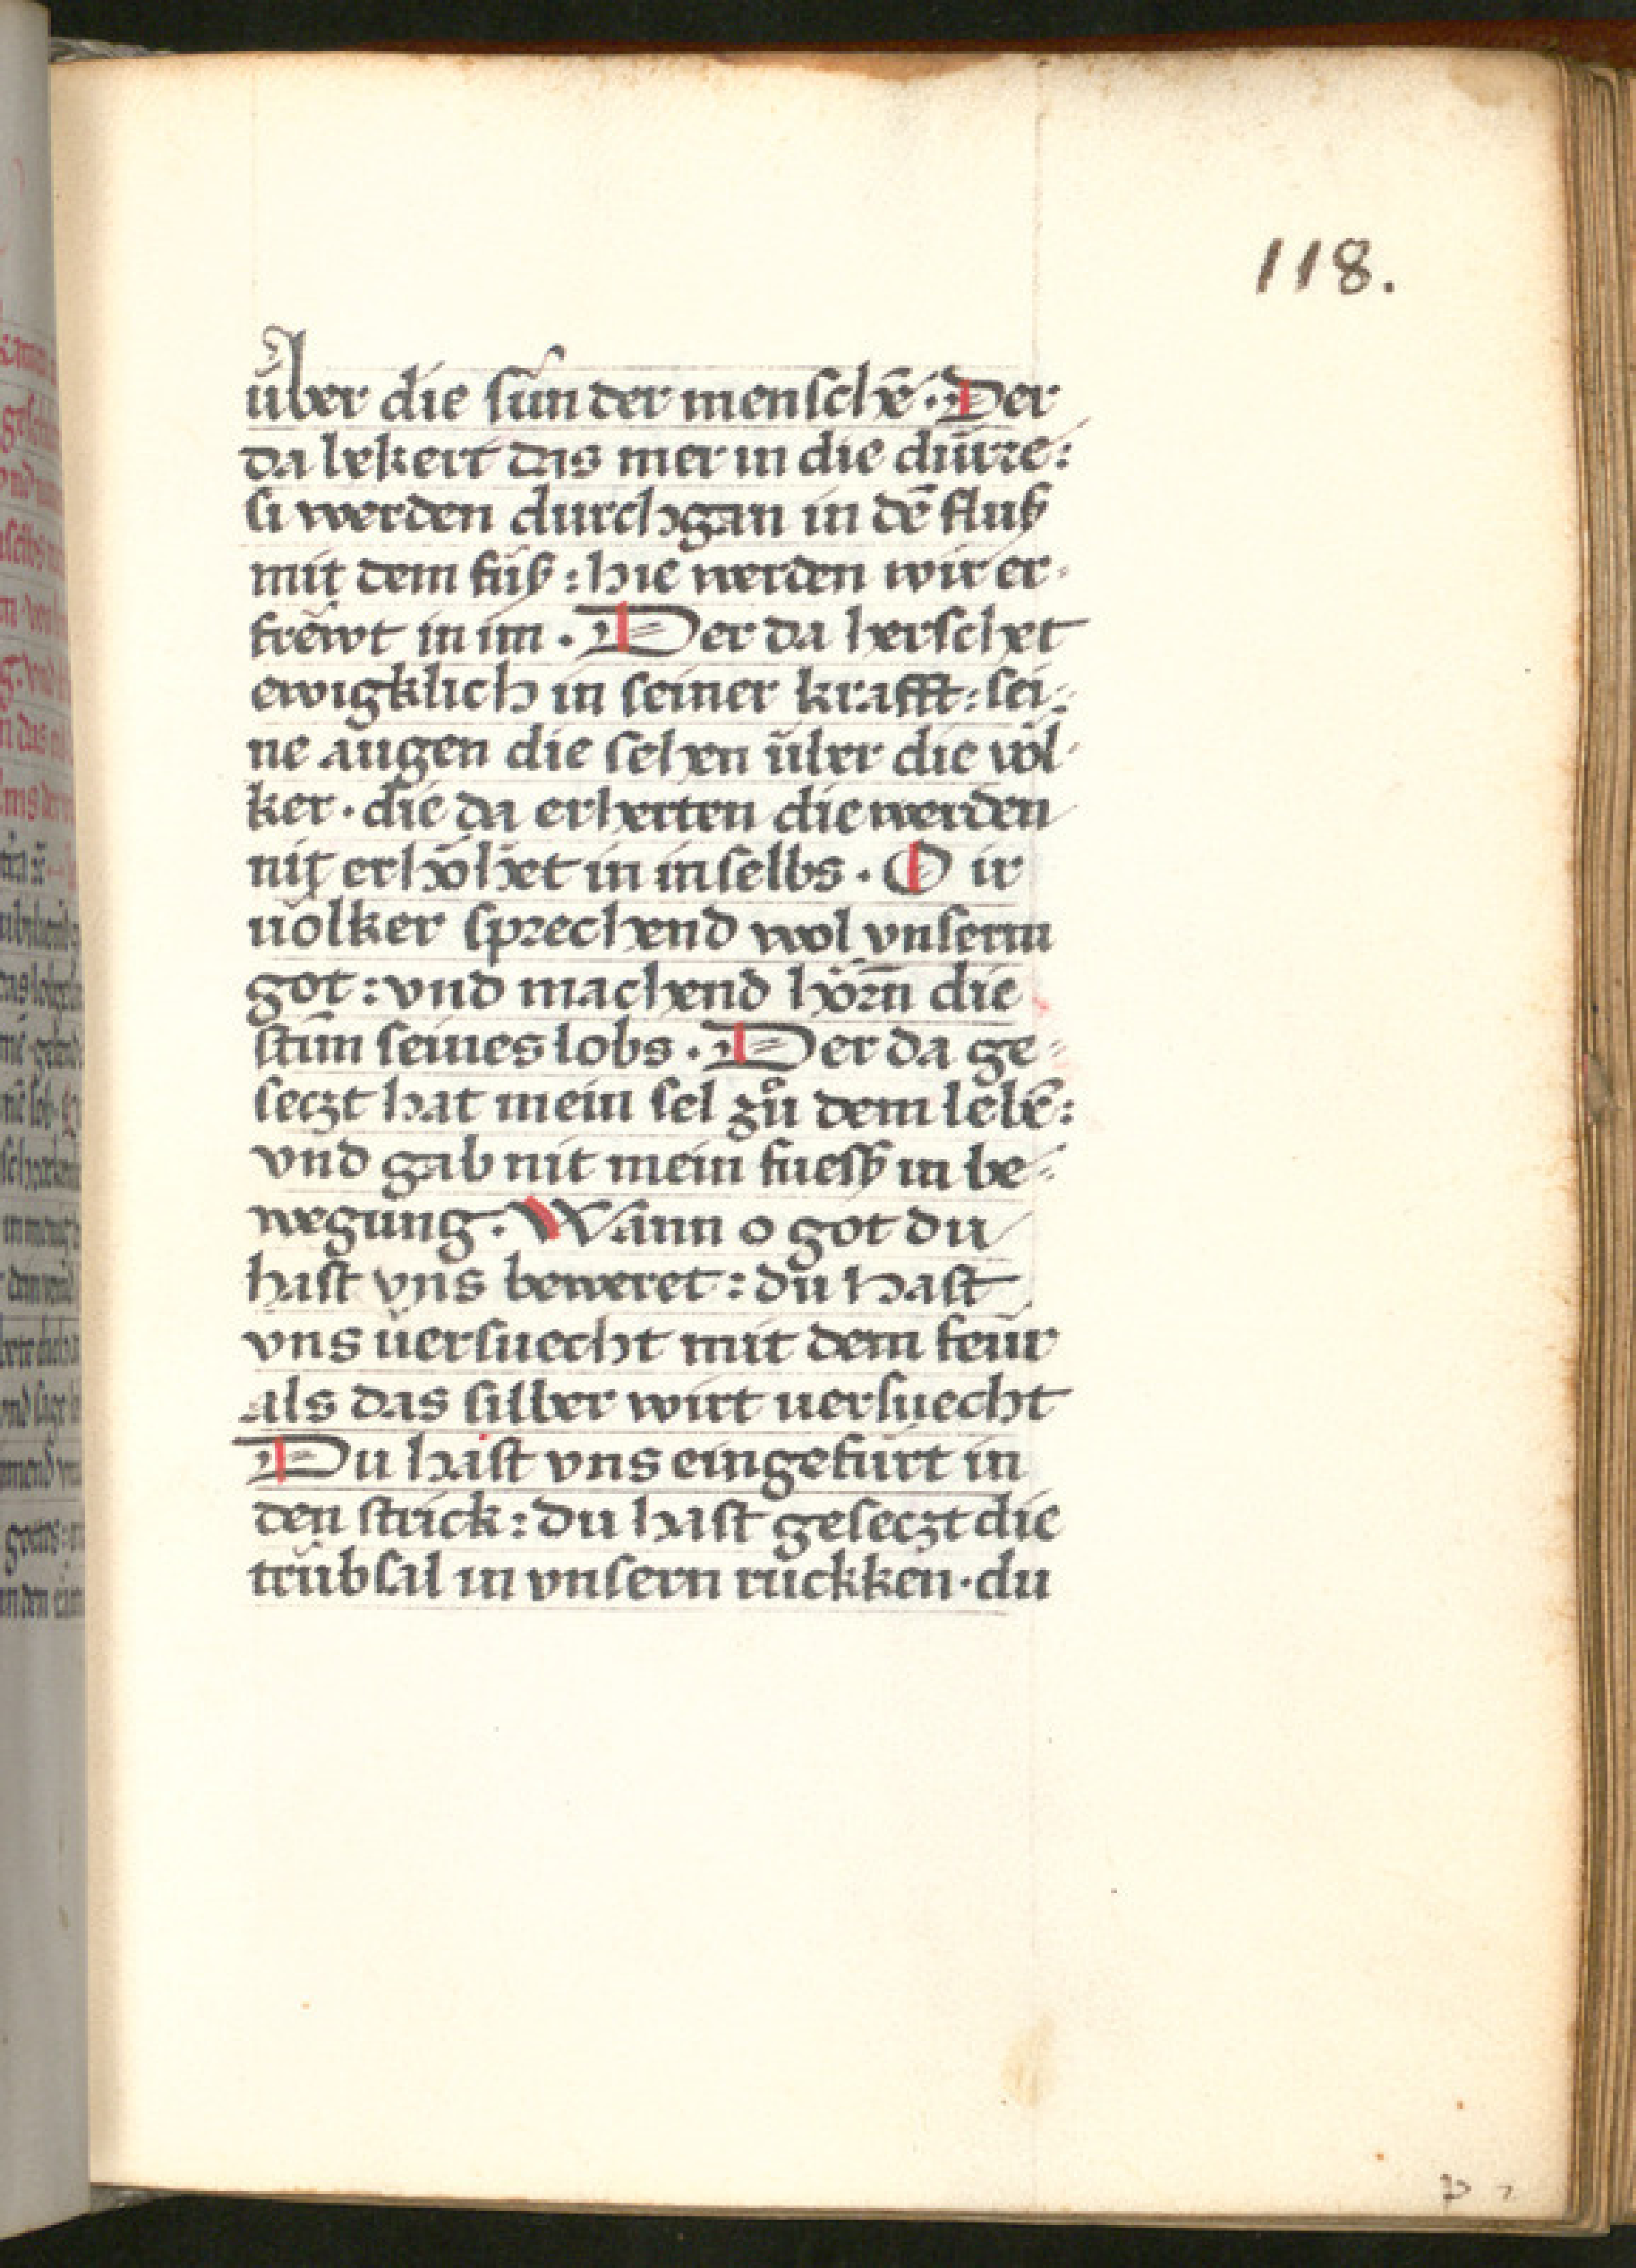 118.
über die sün der menschē · Der
da bekert das mer in die dürre :
si werden durchgan in dē fluß
mit dem fuß : hie werden wir er-
frewt in im · Der da herschet
ewigklich in seiner krafft : sei-
ne augen die sehen über die völ-
ker · die da erherten die werden
nit erhöhet in in selbs · O ir
uölker sprechend wol vnserm
got : vnd machend hörn̄ die
stim seines lobs · Der da ge-
seczt hat mein sel zů dem lebē :
vnd gab nit mein fuess in be-
wegung · Wann o got du
hast vns beweret : du hast
vns uersuecht mit dem feür
als das silber wirt uersuecht
Du hast vns eingefürt in
den strick : du hast geseczt die
trübsal in vnsern rückken · du